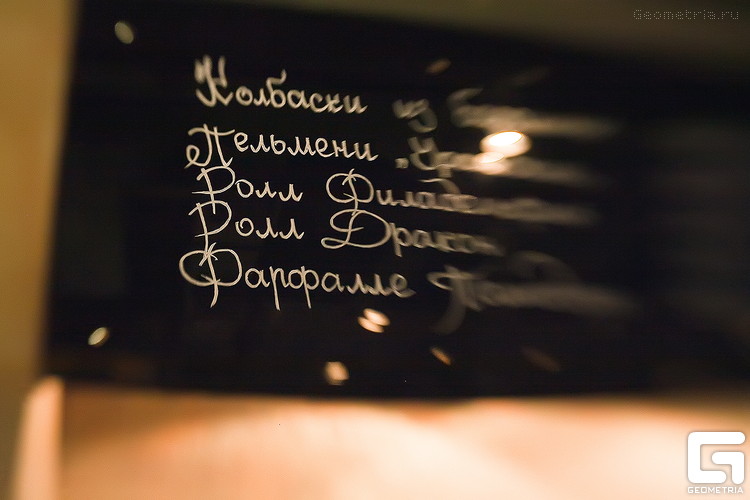 Geometria.ru
Колбаски из
Пельмени
Ролл Филадельфия
Ролл Дракон
Фарфалле
GEOMETRIA